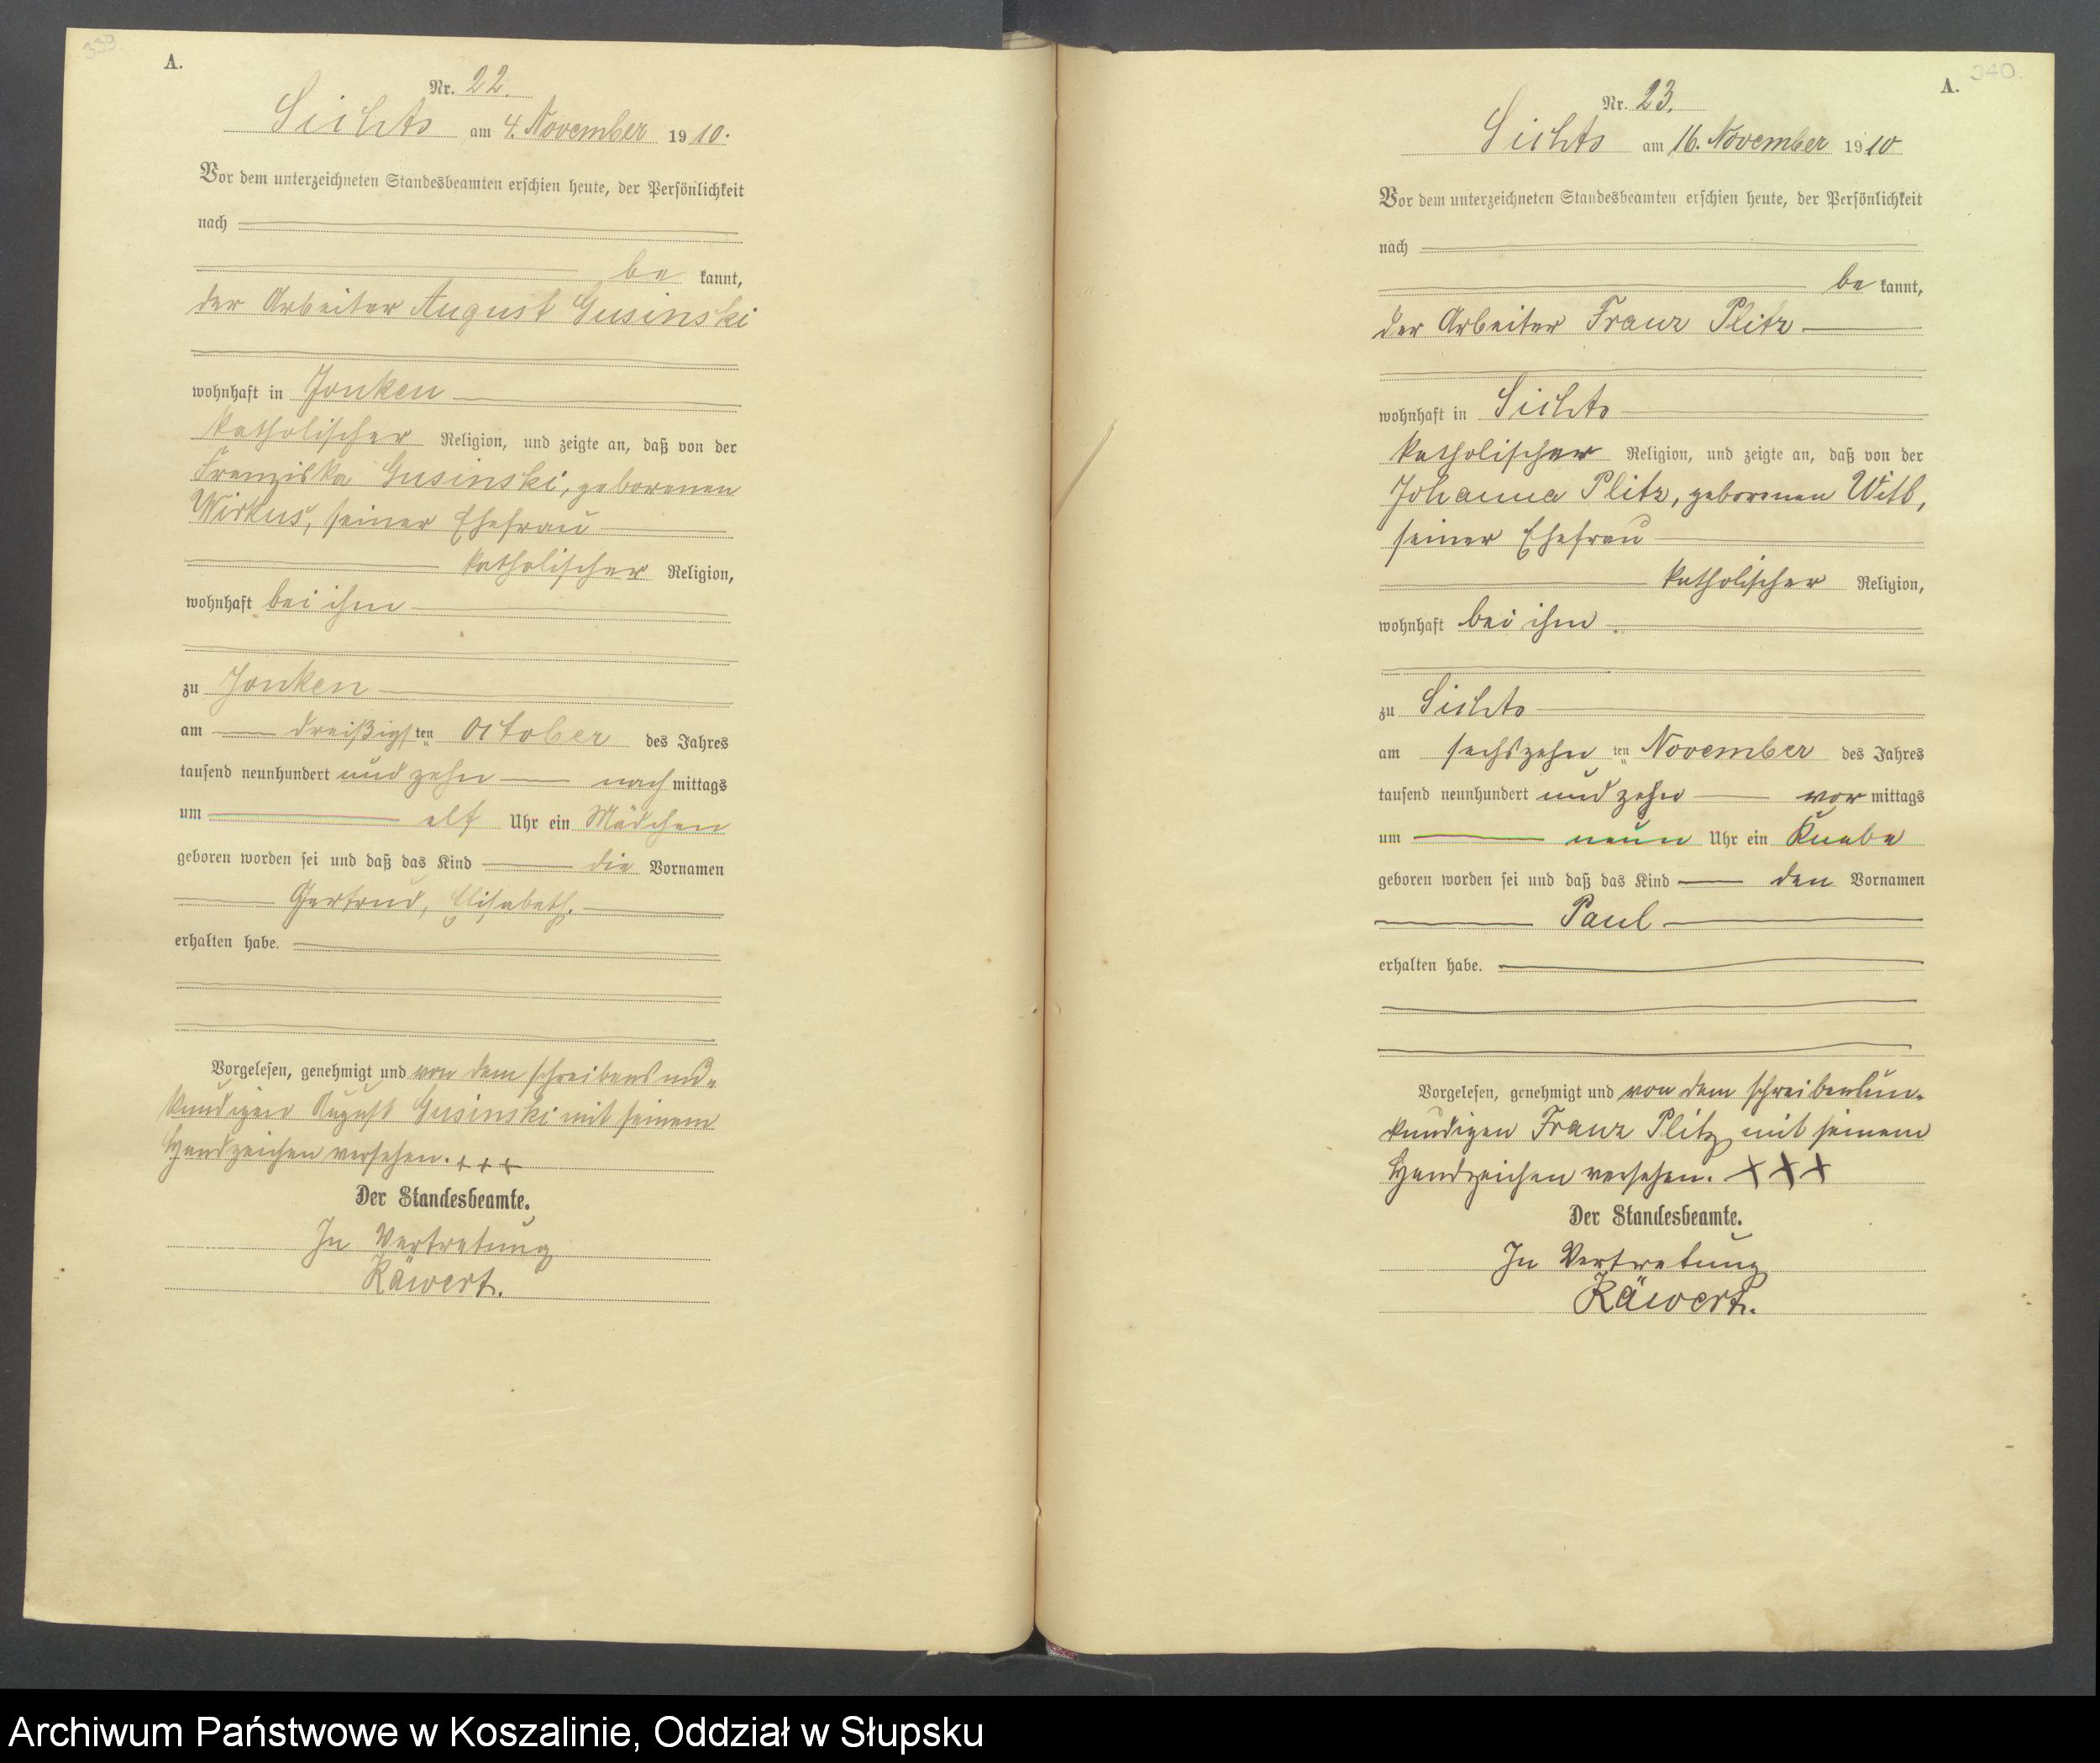 339.
A.
Nr. 22.
Sichts am 4. November 1910.
Vor dem unterzeichneten Standesbeamten erschien heute, der Persönlichkeit
nach
be kannt,
der Arbeiter August Gusinski
wohnhaft in Jonken
katholischer Religion, und zeigte an, daß von der
Franziska Gusinski, geborenen
Wirkus, seiner Ehefrau
katholischer Religion,
wohnhaft bei ihm
zu Jonken
am dreißigsten October des Jahres
tausend neunhundert und zehn nach mittags
um elf Uhr ein Mädchen
geboren worden sei und daß das Kind die Vornamen
Gertrud, Elisabeth.
erhalten habe.
Vorgelesen, genehmigt und von dem schreibensun-
kundigen August Gusinski mit seinem
Handzeichen versehen. +++
Der Standesbeamte.
In Vertretung
Räwert.
340.
A.
Nr. 23.
Sichts am 16. November 1910
Vor dem unterzeichneten Standesbeamten erschien heute, der Persönlichkeit
nach
be kannt,
der Arbeiter Franz Plitz
wohnhaft in Sichts
katholischer Religion, und zeigte an, daß von der
Johanna Plitz, geborenen Witt,
seiner Ehefrau
katholischer Religion,
wohnhaft bei ihm
zu Sichts
am sechszehn ten November des Jahres
tausend neunhundert und zehn vor mittags
um neun Uhr ein Knabe
geboren worden sei und daß das Kind den Vornamen
Paul
erhalten habe.
Vorgelesen, genehmigt und von dem schreibensun-
kundigen Franz Plitz mit seinem
Handzeichen versehen. +++
Der Standesbeamte.
In Vertretung
Räwert.
Archiwum Państwowe w Koszalinie, Oddział w Słupsku